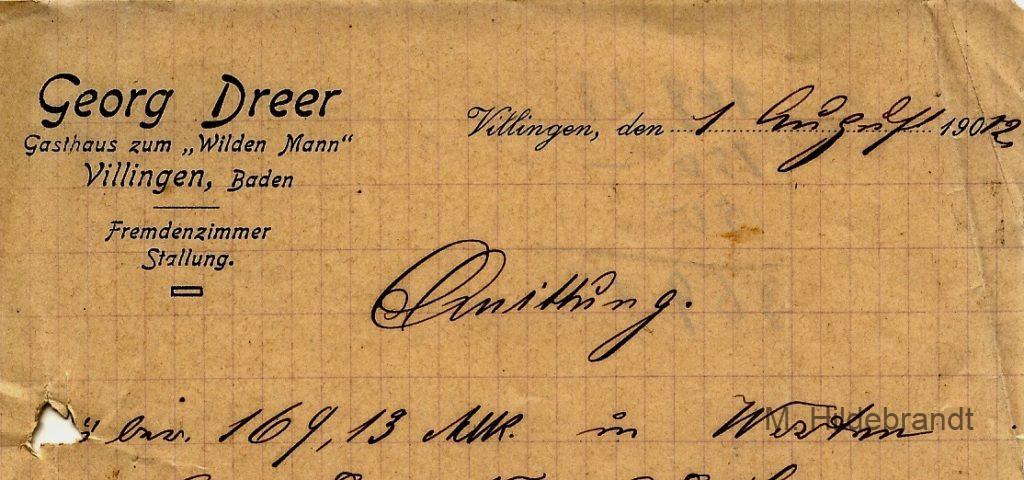 Georg Dreer
Gasthaus zum „Wilden Mann“
Villingen, Baden
Fremdenzimmer
Stallung.
Villingen, den 1 August 19012
Quittung.
169,13 Mk. in Worten
M. Hildebrandt